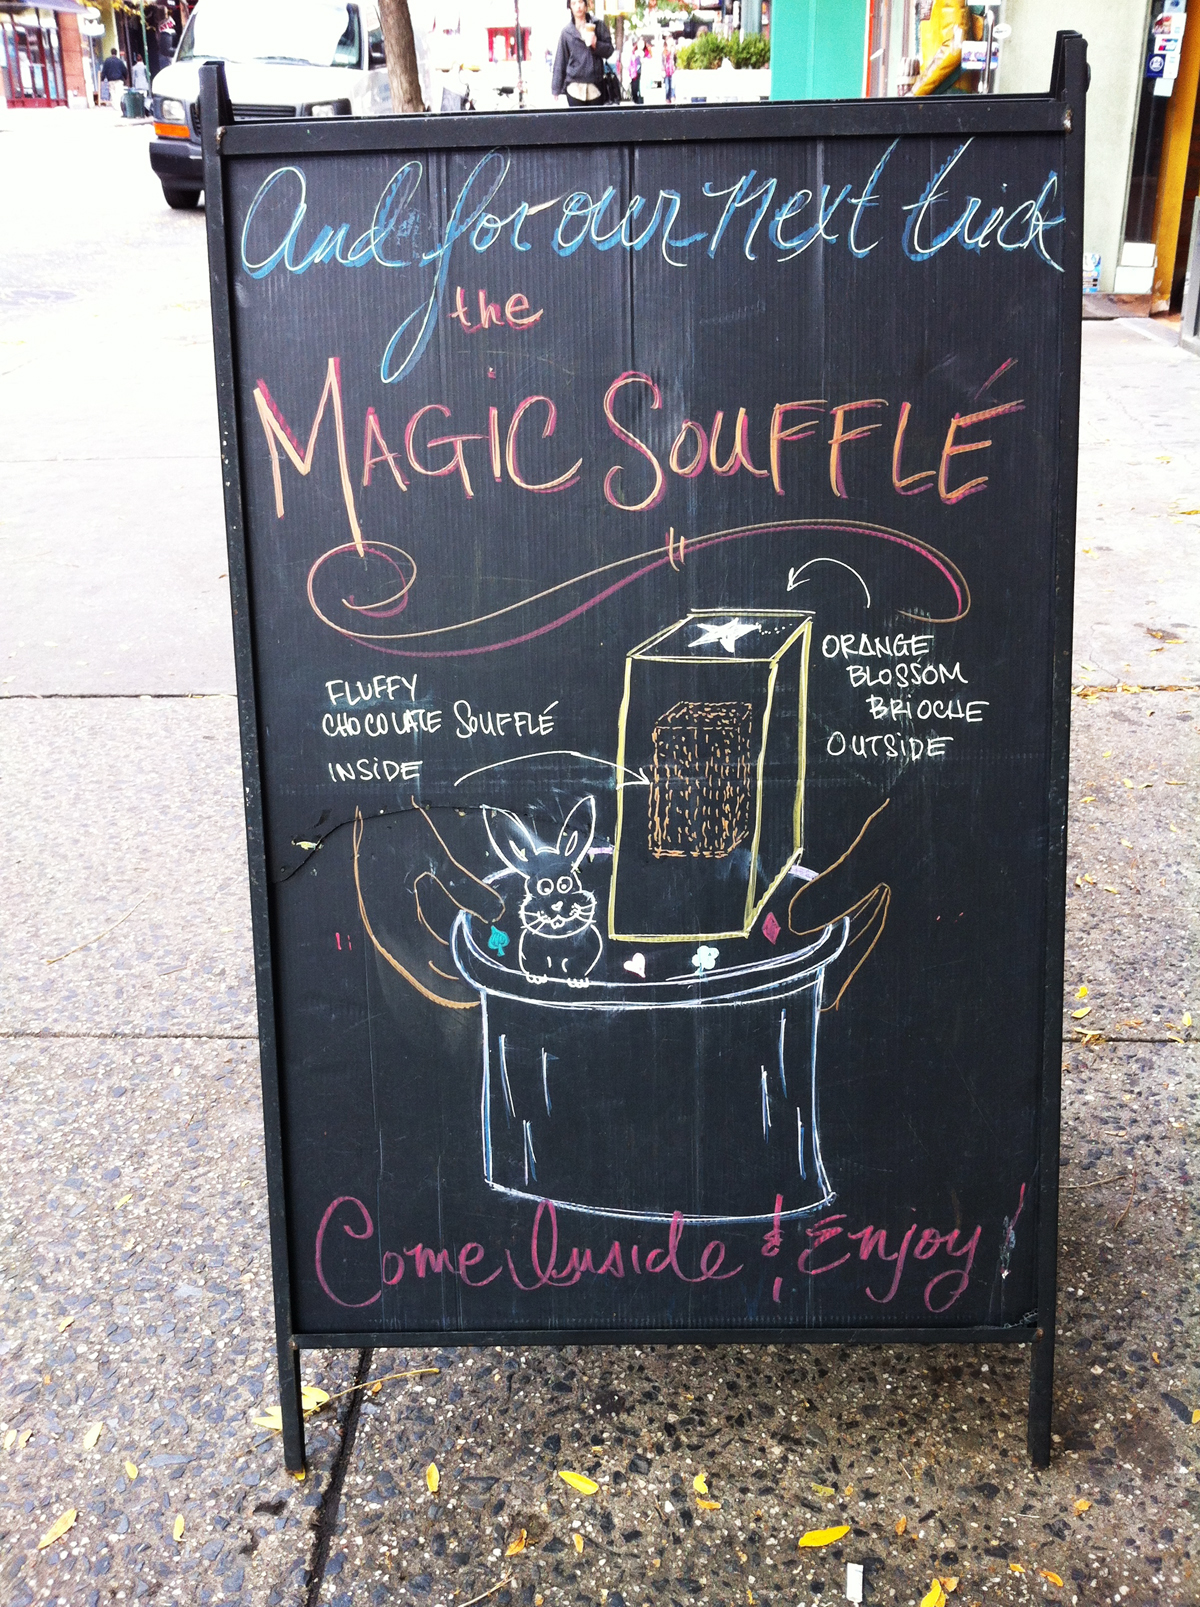 And for our next trick
the
MAGiC SOUFFLÉ
ORANGE
BLOSSOM
BRIOCHE
OUTSIDE
FLUFFY
CHOCOLATE SOUFFLÉ
INSiDE
Come Inside & Enjoy!